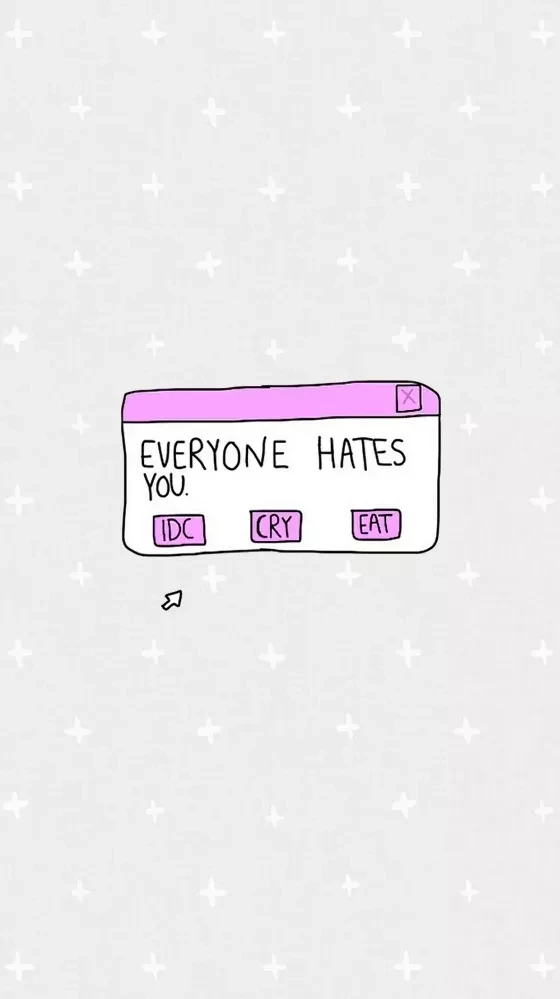 X
EVERYONE HATES
YOU.
IDC CRY EAT